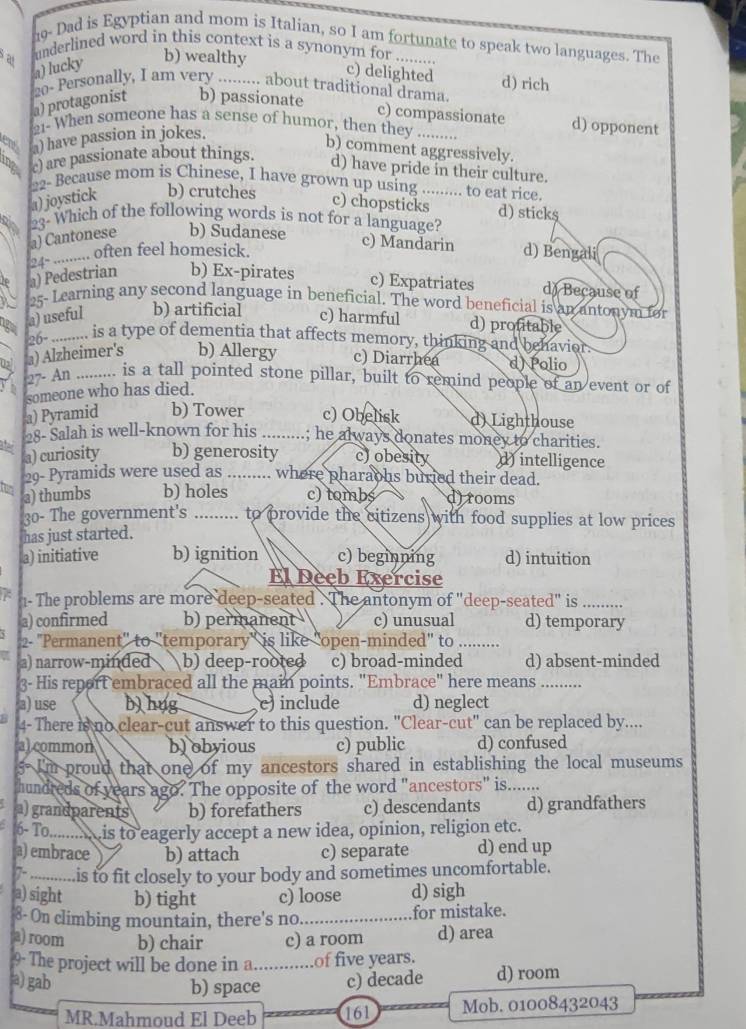 19- Dad is Egyptian and mom is Italian, so I am fortunate to speak two languages. The
underlined word in this context is a synonym for .........
a) lucky b) wealthy c) delighted d) rich
20- Personally, I am very ......... about traditional drama.
a) protagonist b) passionate c) compassionate d) opponent
21- When someone has a sense of humor, then they .........
a) have passion in jokes. b) comment aggressively.
c) are passionate about things. d) have pride in their culture.
22- Because mom is Chinese, I have grown up using ......... to eat rice.
a) joystick b) crutches c) chopsticks d) sticks
23- Which of the following words is not for a language?
a) Cantonese b) Sudanese c) Mandarin d) Bengali
24- ......... often feel homesick.
a) Pedestrian b) Ex-pirates c) Expatriates d) Because of
25- Learning any second language in beneficial. The word beneficial is an antonym for
a) useful b) artificial c) harmful d) profitable
26- ......... is a type of dementia that affects memory, thinking and behavior.
a) Alzheimer's b) Allergy c) Diarrhea d) Polio
27- An ......... is a tall pointed stone pillar, built to remind people of an event or of
someone who has died.
a) Pyramid b) Tower c) Obelisk d) Lighthouse
28- Salah is well-known for his .........; he always donates money to charities.
a) curiosity b) generosity c) obesity d) intelligence
29- Pyramids were used as ......... where pharaohs buried their dead.
a) thumbs b) holes c) tombs d) rooms
30- The government's ......... to provide the citizens with food supplies at low prices
has just started.
a) initiative b) ignition c) beginning d) intuition
El Deeb Exercise
1- The problems are more deep-seated . The antonym of "deep-seated" is .........
a) confirmed b) permanent c) unusual d) temporary
2- "Permanent" to "temporary" is like "open-minded" to .........
a) narrow-minded b) deep-rooted c) broad-minded d) absent-minded
3- His report embraced all the main points. "Embrace" here means .........
a) use b) hug c) include d) neglect
4- There is no clear-cut answer to this question. "Clear-cut" can be replaced by....
a) common b) obvious c) public d) confused
5- I'm proud that one of my ancestors shared in establishing the local museums
hundreds of years ago. The opposite of the word "ancestors" is.......
a) grandparents b) forefathers c) descendants d) grandfathers
6- To............is to eagerly accept a new idea, opinion, religion etc.
a) embrace b) attach c) separate d) end up
7- ...........is to fit closely to your body and sometimes uncomfortable.
a) sight b) tight c) loose d) sigh
8- On climbing mountain, there's no.......................for mistake.
a) room b) chair c) a room d) area
9- The project will be done in a.............of five years.
a) gab b) space c) decade d) room
MR.Mahmoud El Deeb 161 Mob. 01008432043